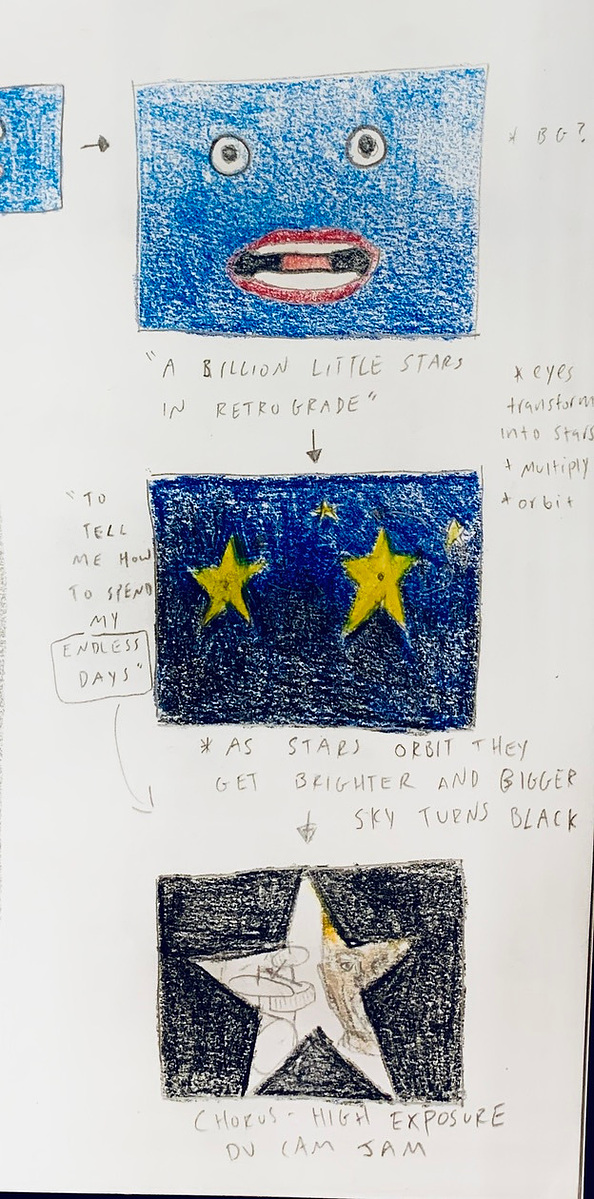 * BG?
"A BILLION LITTLE STARS
IN RETROGRADE"
* eyes
transform
into stars
* multiply
* orbit
"TO
TELL
ME HOW
TO SPEND
MY
ENDLESS
DAYS"
* AS STARS ORBIT THEY
GET BRIGHTER AND BIGGER
SKY TURNS BLACK
CHORUS - HIGH EXPOSURE
DV CAM JAM